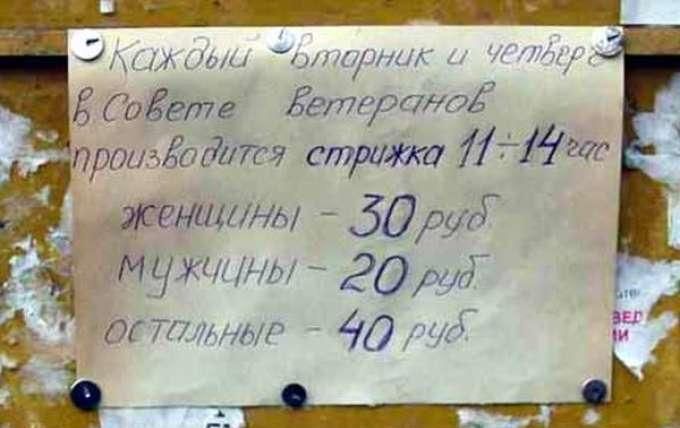 Каждый вторник и четверг
в Совете ветеранов
производится стрижка 11÷14 час
женщины - 30 руб.
мужчины - 20 руб.
остальные - 40 руб.
ВЕД
ИИ